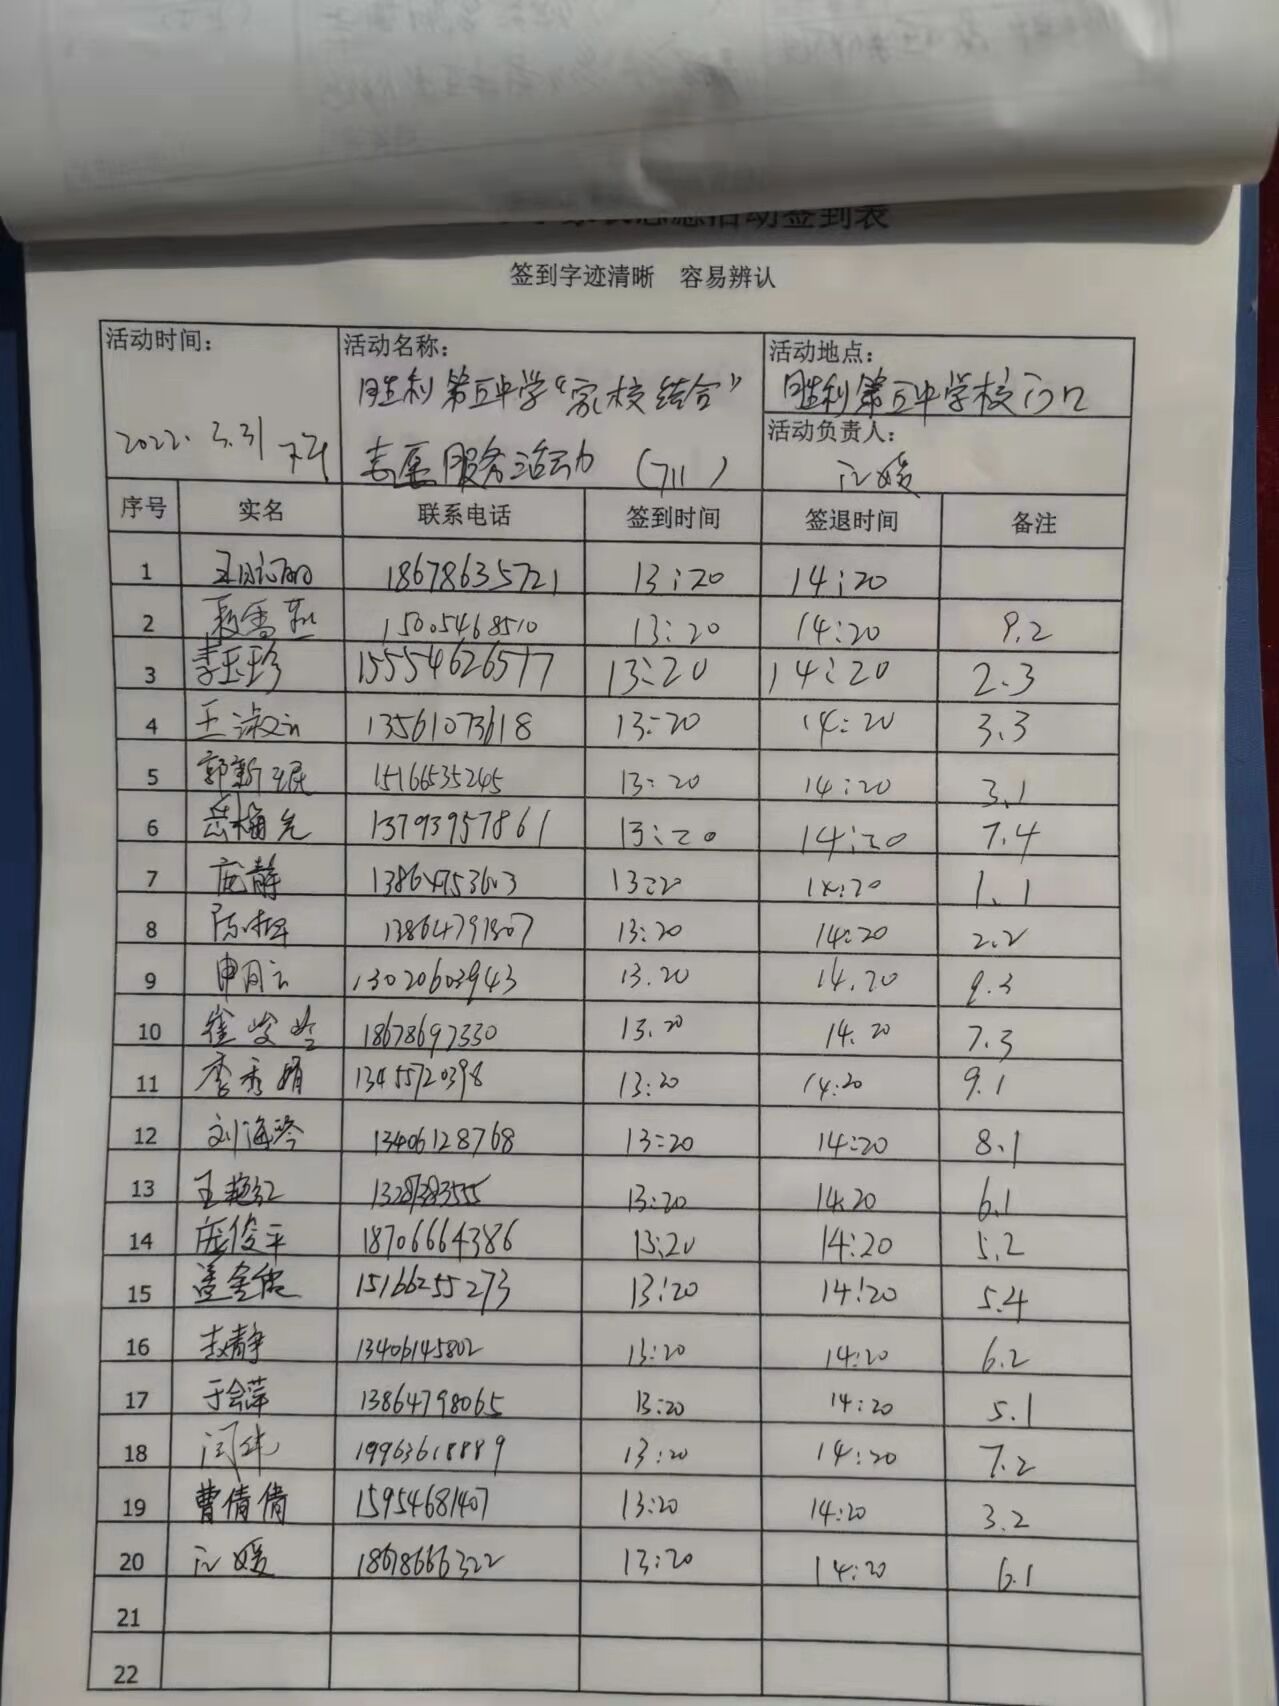 活动签到表
签到字迹清晰 容易辨认
活动时间：
2022.3.31 下午
活动名称：
胜利第五中学“家校结合”
志愿服务活动 (711)
活动地点：
胜利第五中学校门口
活动负责人：
江媛
序号 实名 联系电话 签到时间 签退时间 备注
1 18678635721 13:20 14:20
2 15005468510 13:20 14:20 9.2
3 李玉珍 15554626577 13:20 14:20 2.3
4 王淑云 13561073618 13:20 14:20 3.3
5 郭新珉 15166535245 13:20 14:20 3.1
6 13793957861 13:20 14:20 7.4
7 庞静 13864753603 13:20 14:20 1.1
8 13864791807 13:20 14:20 2.2
9 申月云 13020603943 13.20 14.20 9.3
10 崔峻岭 18678697330 13.20 14.20 7.3
11 李秀娟 13455720398 13:20 14:20 9.1
12 刘海琴 13406128768 13:20 14:20 8.1
13 王艳红 13287383555 13:20 14:20 6.1
14 庞俊平 18706664386 13:20 14:20 5.2
15 15166255273 13:20 14:20 5.4
16 赵静 13406145802 13:20 14:20 6.2
17 于会萍 13864798065 13:20 14:20 5.1
18 闫伟 19963618889 13:20 14:20 7.2
19 曹倩倩 15954681407 13:20 14:20 3.2
20 江媛 18678666322 13:20 14:20 6.1
21
22